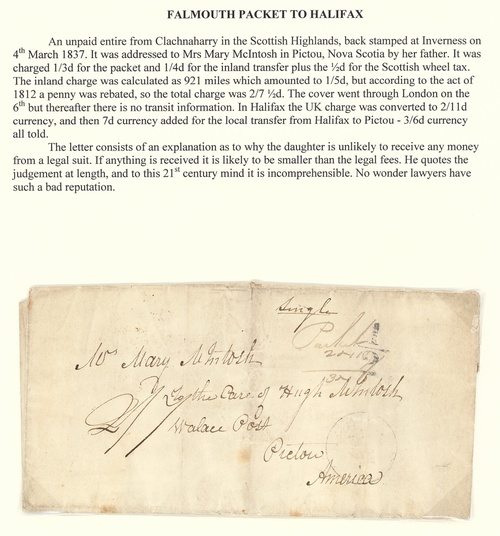 FALMOUTH PACKET TO HALIFAX
An unpaid entire from Clachnaharry in the Scottish Highlands, back stamped at Inverness on
4th March 1837. It was addressed to Mrs Mary McIntosh in Pictou, Nova Scotia by her father. It was
charged 1/3d for the packet and 1/4d for the inland transfer plus the ½d for the Scottish wheel tax.
The inland charge was calculated as 921 miles which amounted to 1/5d, but according to the act of
1812 a penny was rebated, so the total charge was 2/7 ½d. The cover went through London on the
6th but thereafter there is no transit information. In Halifax the UK charge was converted to 2/11d
currency, and then 7d currency added for the local transfer from Halifax to Pictou - 3/6d currency
all told.
The letter consists of an explanation as to why the daughter is unlikely to receive any money
from a legal suit. If anything is received it is likely to be smaller than the legal fees. He quotes the
judgement at length, and to this 21st century mind it is incomprehensible. No wonder lawyers have
such a bad reputation.
Single
Packet
Mrs Mary McIntosh
To the Care of Hugh McIntosh
Walace Post
Pictou
America